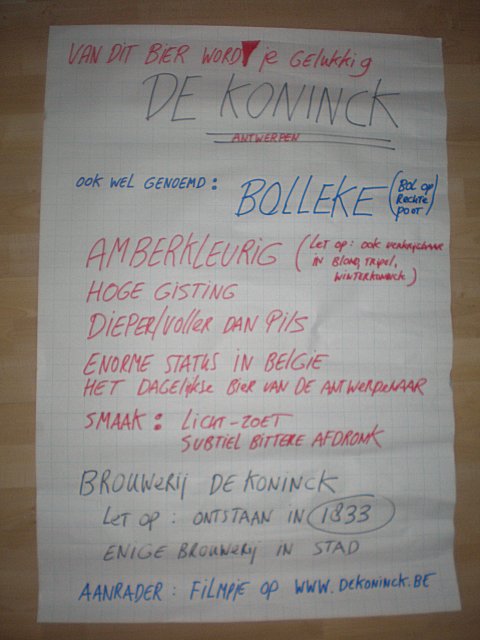 VAN DIT BIER WORDT je GELUKKIG
DE KONINCK
ANTWERPEN
OOK WEL GENOEMD: BOLLEKE (BOL OP RECHTE POOT)
AMBERKLEURIG (LET OP: OOK VERKRIJGBAAR
IN BLOND, TRIPEL,
WINTERKONINCK)
HOGE GISTING
DIEPER/VOLLER DAN PILS
ENORME STATUS IN BELGIE
HET DAGELIJKSE BIER VAN DE ANTWERPENAAR
SMAAK: LICHT-ZOET
SUBTIEL BITTERE AFDRONK
BROUWERIJ DE KONINCK
LET OP: ONTSTAAN IN 1833
ENIGE BROUWERIJ IN STAD
AANRADER: FILMPJE OP WWW.DEKONINCK.BE